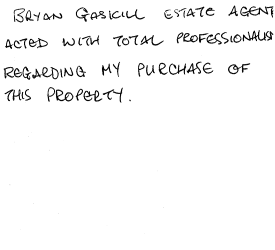 BRYAN GASKILL ESTATE AGENT
ACTED WITH TOTAL PROFESSIONALISM
REGARDING MY PURCHASE OF
THIS PROPERTY.